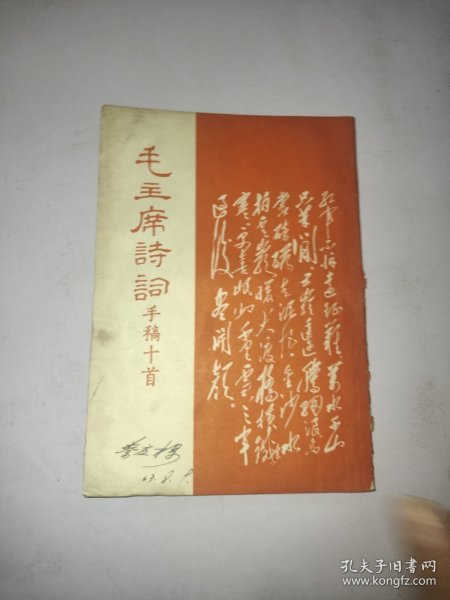 毛主席詩詞
手稿十首
紅軍不怕遠征難萬水千山
只等閒五嶺逶迤騰細浪烏
蒙磅礴走泥丸金沙水
拍雲崖暖大渡橋橫鐵索
寒更喜岷山千里雪三軍
過後盡開顏
孔夫子旧书网
www.kongfz.com